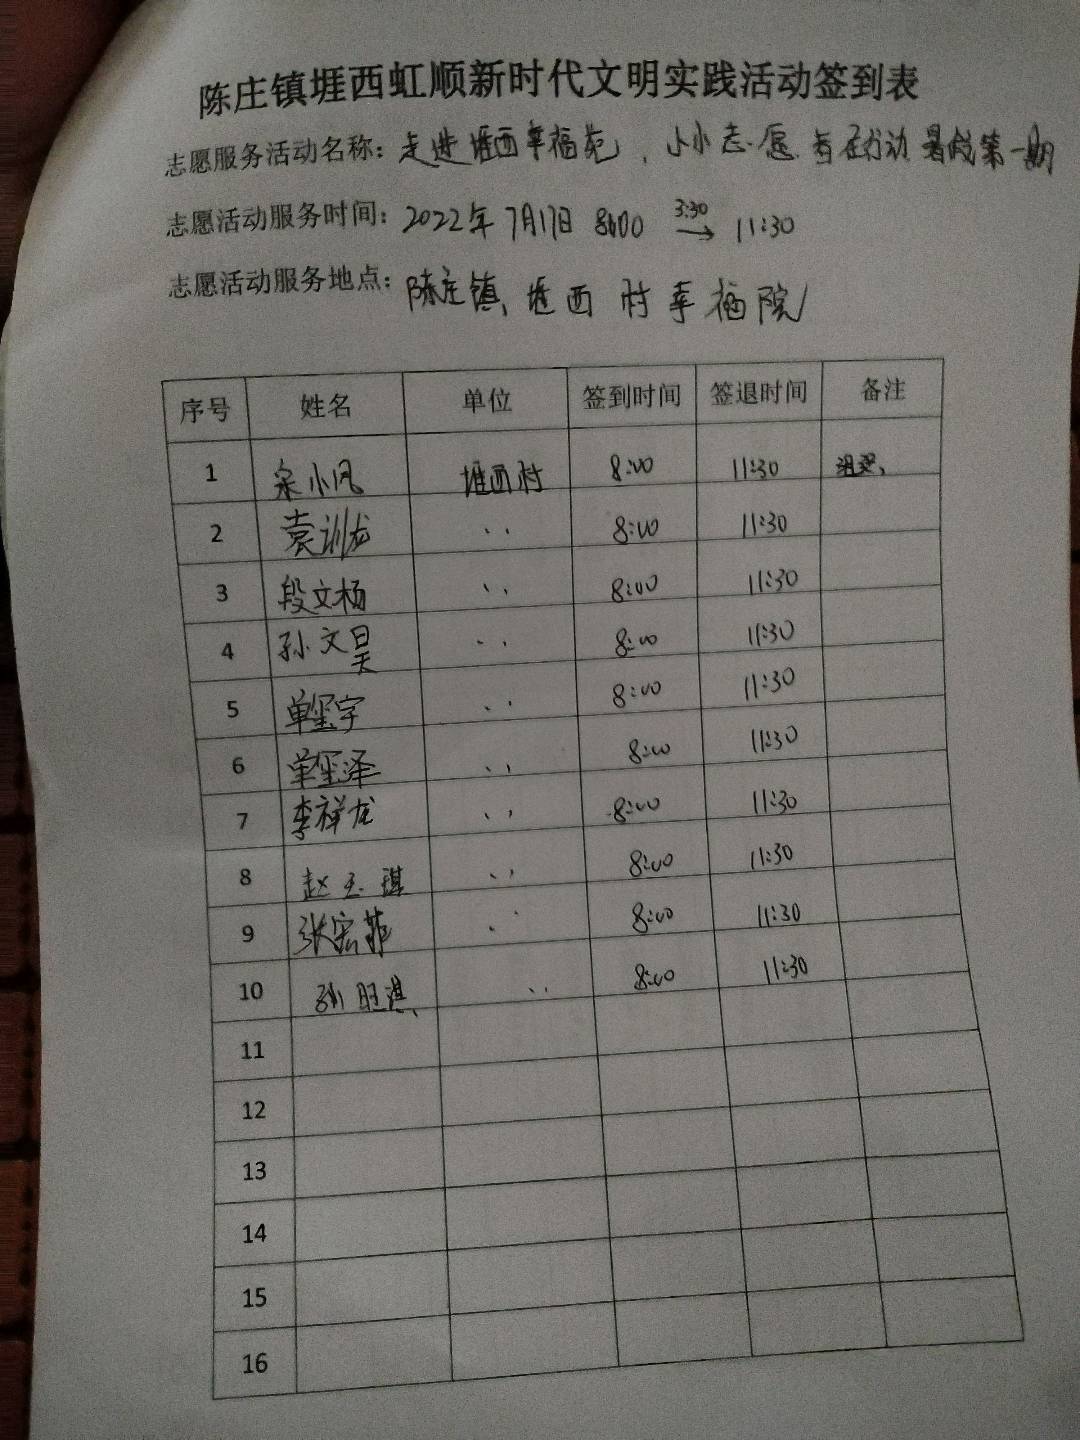 陈庄镇堐西虹顺新时代文明实践活动签到表
志愿服务活动名称：走进堐西幸福苑，小小志愿者在行动暑假第一期
志愿活动服务时间：2022年7月17日 8:00 3:30 → 11:30
志愿活动服务地点：陈庄镇堐西村幸福院
序号 姓名 单位 签到时间 签退时间 备注
1 宗小凤 堐西村 8:00 11:30
2 袁训龙 〃 8:00 11:30
3 段文杨 〃 8:00 11:30
4 孙文昊 〃 8:00 11:30
5 单玺宇 〃 8:00 11:30
6 单玺泽 〃 8:00 11:30
7 李祥龙 〃 8:00 11:30
8 赵玉琪 〃 8:00 11:30
9 张宏菲 〃 8:00 11:30
10 孙旺淇 〃 8:00 11:30
11
12
13
14
15
16